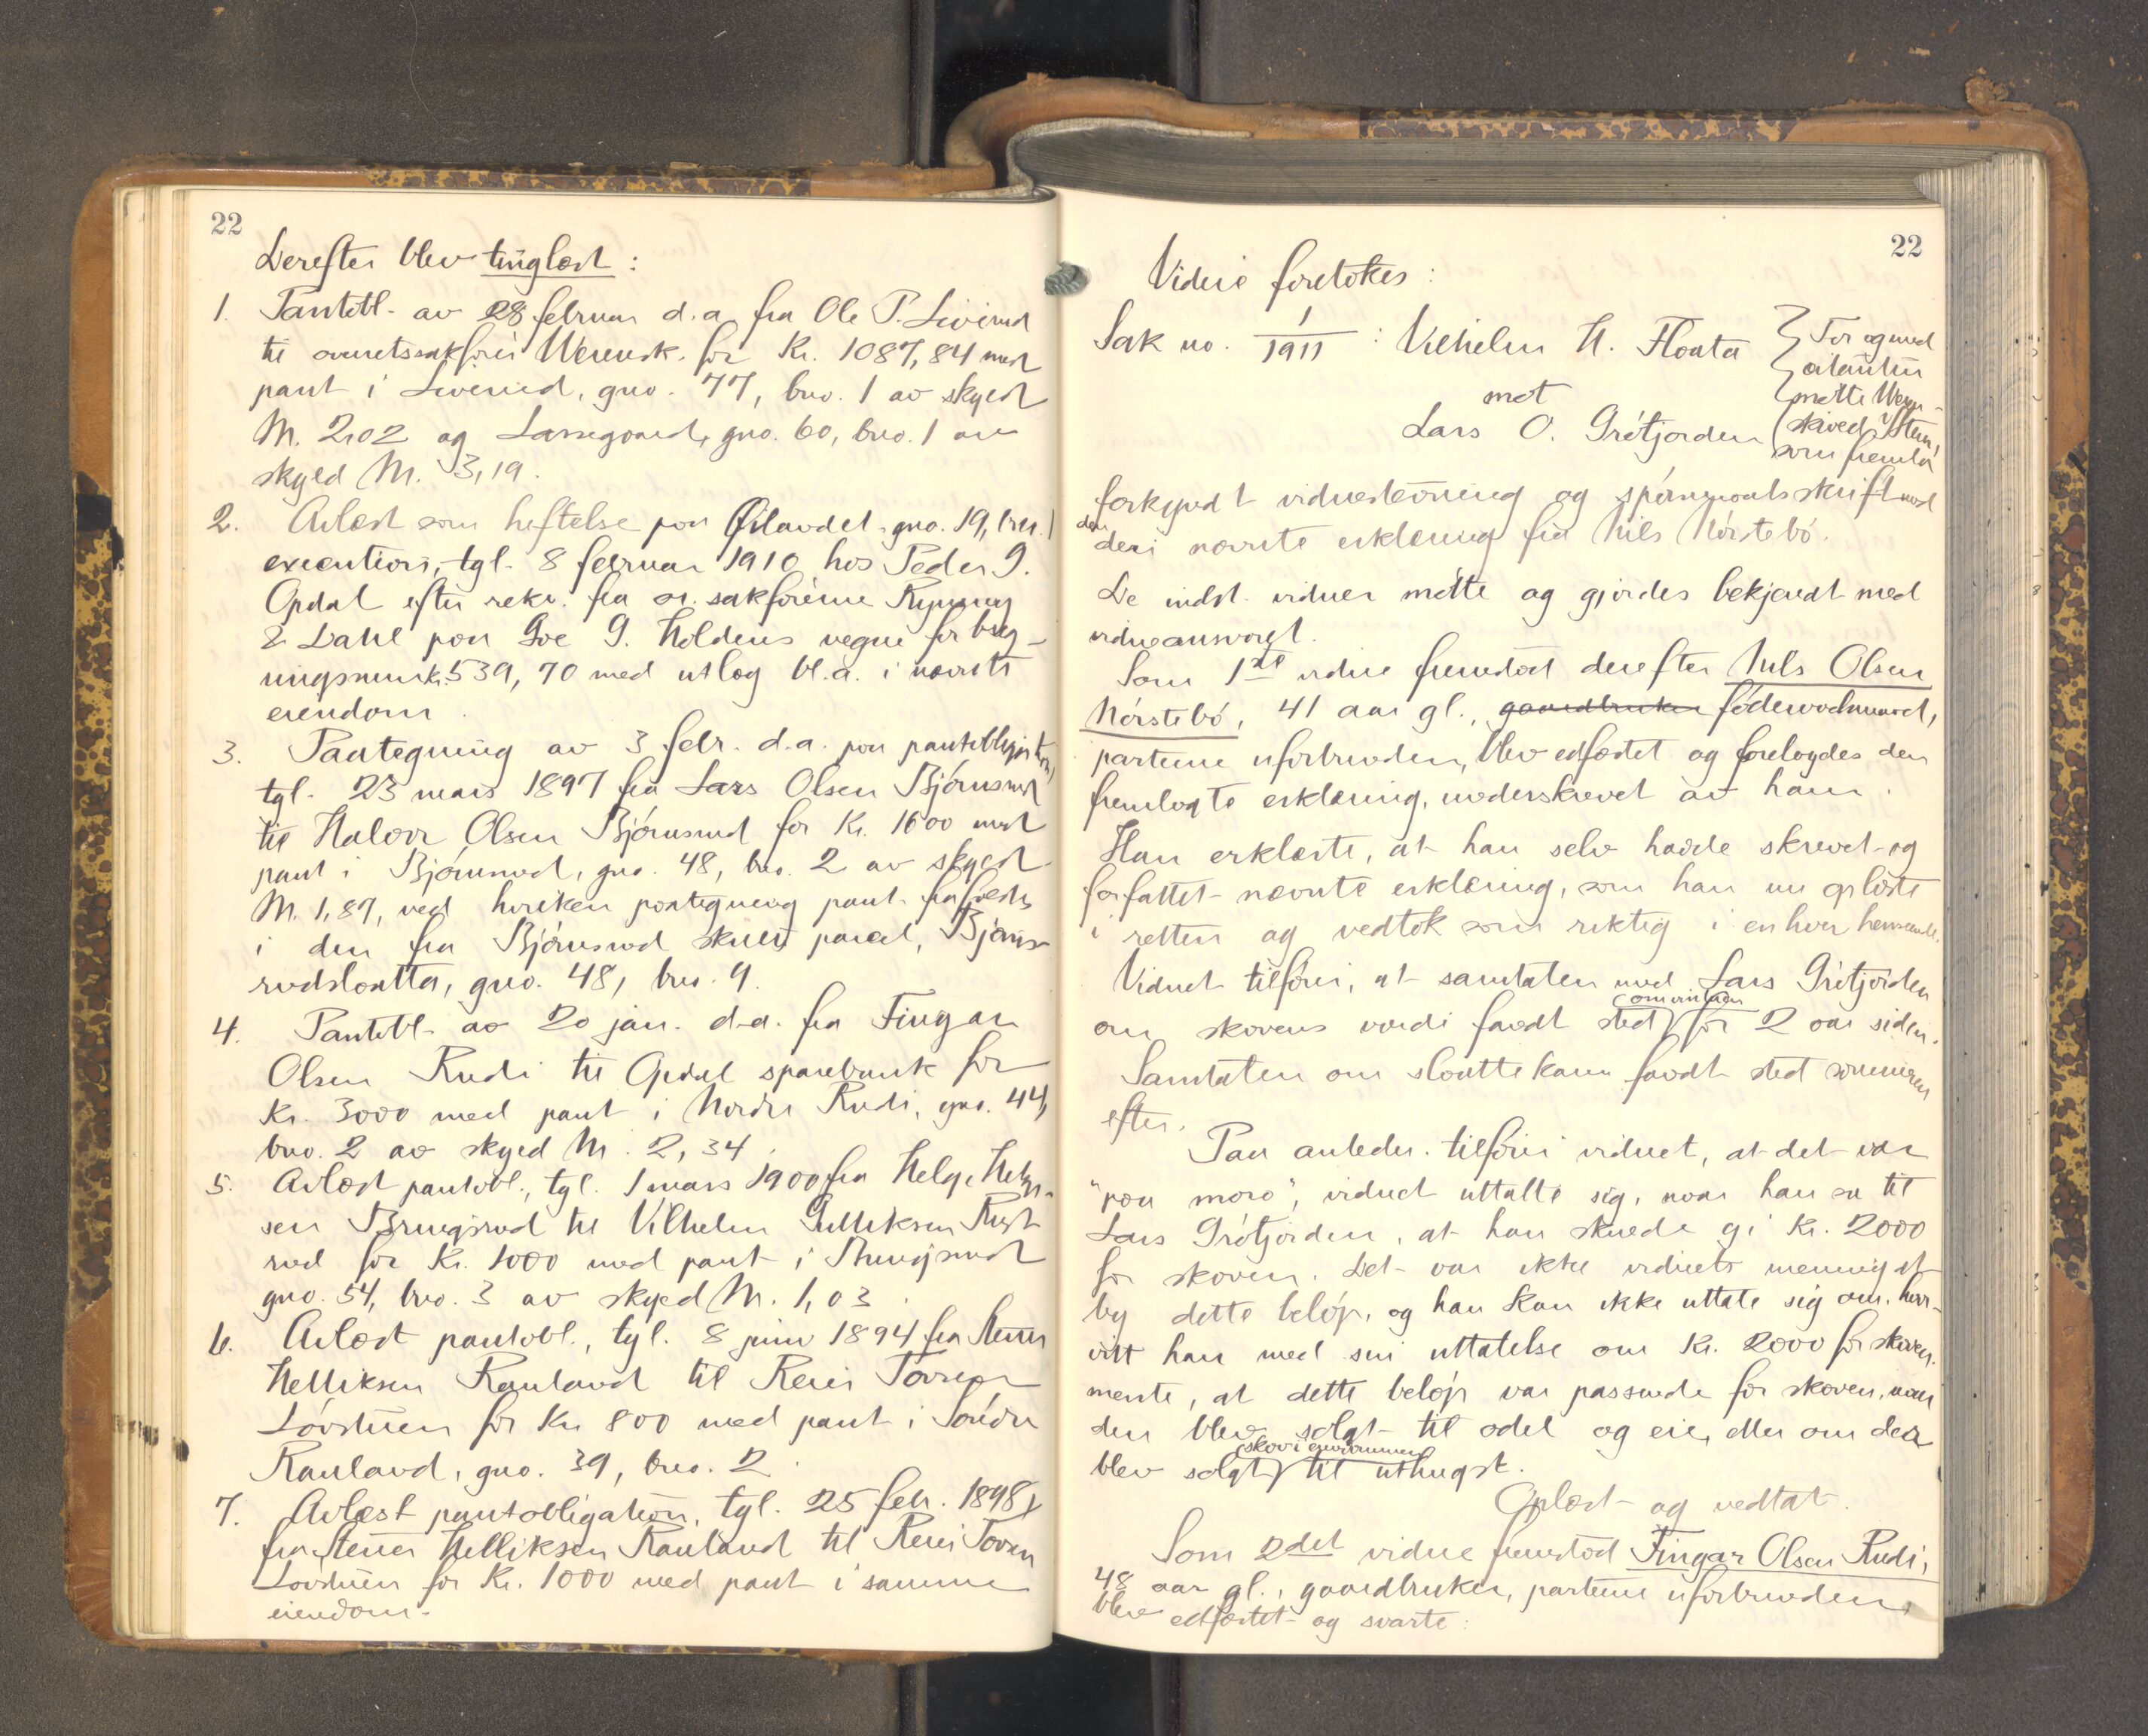 22
Derefter blev tinglæst:
1. Pantobl. av 28 februar d.a. fra Ole P. Liverud
til overretssakfører Werensk. for Kr. 1087,84 med
pant i Liverud, gno. 77, bno. 1 av skyld
M. 2,02 og Lassegaard, gno. 60, bno. 1 av
skyld M. 3,19.
2. Avlæst som heftelse paa gno. 19, bno. 1
execution, tgl. 8 februar 1910 hos Peder G.
Opdal efter rekv. fra or. sakførerne Rynning
& Dahl paa G. Holdens vegne for byg-
ningsmursk. 539,70 med utlæg bl.a. i nævnte
eiendom.
3. Paategning av 3 febr. d.a. paa pantobligation,
tgl. 23 mars 1897 fra Lars Olsen Bjørnsrud
til Halvor Olsen Bjørnsrud for Kr. 1600 med
pant i Bjørnsrud, gno. 48, bno. 2 av skyld
M. 1,87, ved hvilken paategning pant frafaldes
i den fra Bjørnsrud skilte parcel, Bjørns-
rudslaatta, gno. 48, bno. 9.
4. Pantobl. av 20 jan. d.a. fra Fingar
Olsen Rudi til Opdal sparebank for
Kr. 3000 med pant i Nordre Rudi, gno. 44,
bno. 2 av skyld M. 2,34.
5. Avlæst pantobl., tgl. 1 mars 1900 fra Helge Helge-
sen Bringsrud til Vilhelm Gulliksen
rud for Kr. 1000 med pant i Bringsrud
gno. 54, bno. 3 av skyld M. 1,03.
6. Avlæst pantobl., tgl. 8 juni 1894 fra Stener
Helliksen Rauland til Reier Torresen
Løvstuen for Kr. 800 med pant i Søndre
Rauland, gno. 39, bno. 2.
7. Avlæst pantobligation, tgl. 25 febr. 1898
fra Stener Helliksen Rauland til Reier Torresen
Løvstuen for Kr. 1000 med pant i samme
eiendom.
22
Videre foretokes:
Sak no. 1/1911: Vilhelm H. Floata
mot
Lars O. Grøtjorden
For og med
citantin
møtte Weren-
skiold Steen,
som fremla
forkyndt vidnestevning og spørsmaalsskrift med
den
deri nævnte erklæring fra Nils Nørstebø.
De indst. vidner møtte og gjordes bekjendt med
vidneansvaret.
Som 1ste vidne fremstod derefter Nils Olsen
Nørstebø, 41 aar gl., gaardbruker føderaadsmand,
parterne uforbunden, blev edfæstet og forelagdes den
fremlagte erklæring, underskrevet av ham.
Han erklærte, at han selv hadde skrevet og
forfattet nævnte erklæring, som han nu oplæste
i retten og vedtok som riktig i enhver henseende.
Vidnet tilføier, at samtalen med Lars Grøtjorden
om vinteren
om skovens værdi fandt sted for 2 aar siden.
Samtalen om slaattekaren fandt sted sommeren
efter.
Paa anledn. tilføier vidnet, at det var
"paa moro", vidnet uttalte sig, naar han sa til
Lars Grøtjorden, at han skulde gi Kr. 2000
for skoven. Det var ikke vidnets mening at
by dette beløp, og han kan ikke uttale sig om, hvor-
vidt han med sin uttalelse om Kr. 2000 for skoven
mente, at dette beløp var passende for skoven, naar
den blev solgt til odel og eie, eller om den
blev solgt til uthugst.
Oplæst og vedtat.
Som 2det vidne fremstod Fingar Olsen Rudi,
48 aar gl., gaardbruker, parterne uforbunden,
blev edfæstet og svarte: